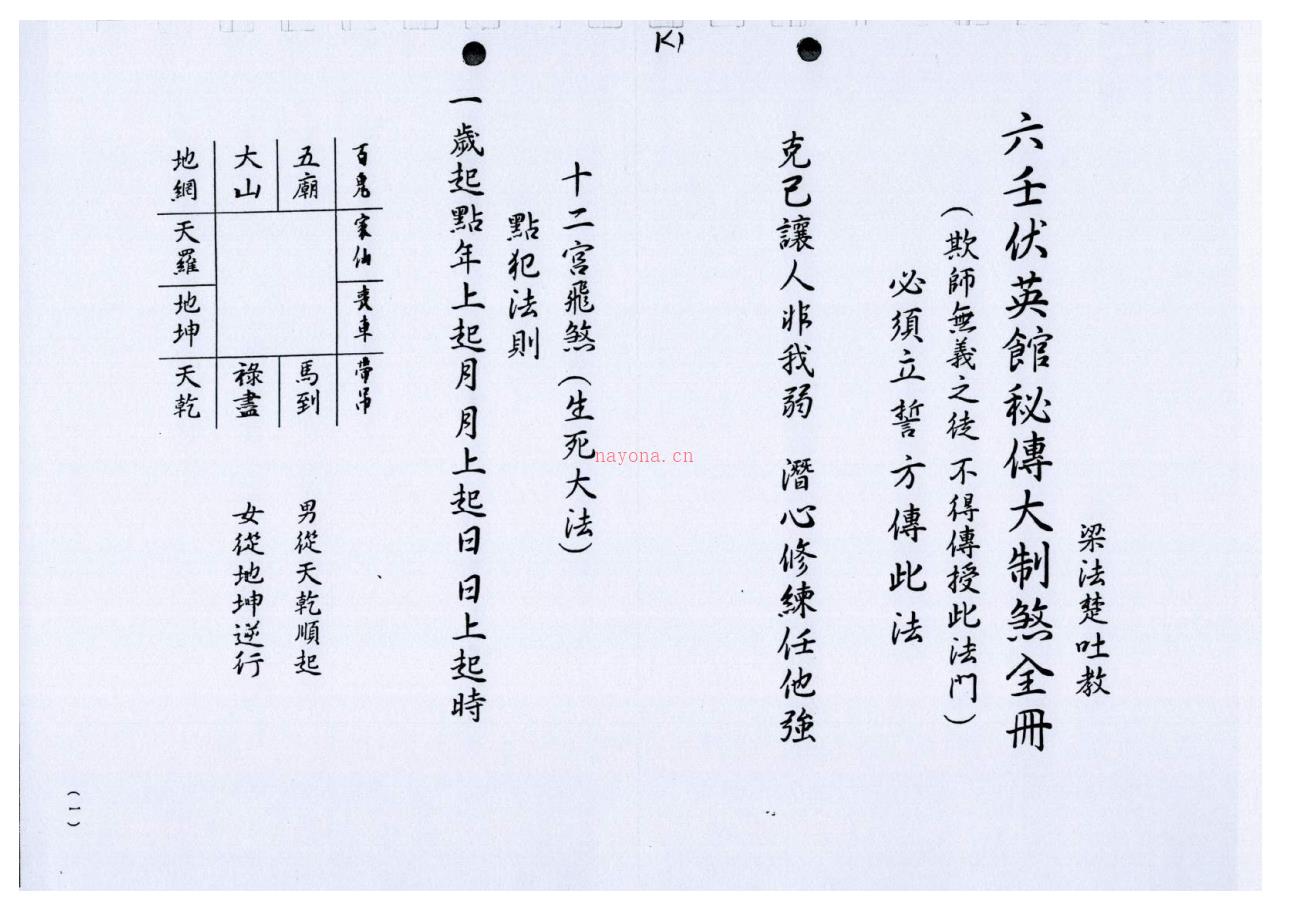 K1
梁法楚吐教
六壬伏英館秘傳大制煞全冊
(欺師無義之徒不得傳授此法門)
必須立誓方傳此法
克己讓人非我弱 潛心修練任他強
十二宮飛煞(生死大法)
點犯法則
一歲起點年上起月月上起日日上起時
家仙
喪車
五廟
馬到
大山
祿盡
地網
天羅
地坤
天乾
男從天乾順起
女從地坤逆行
(一)
nayona.cn